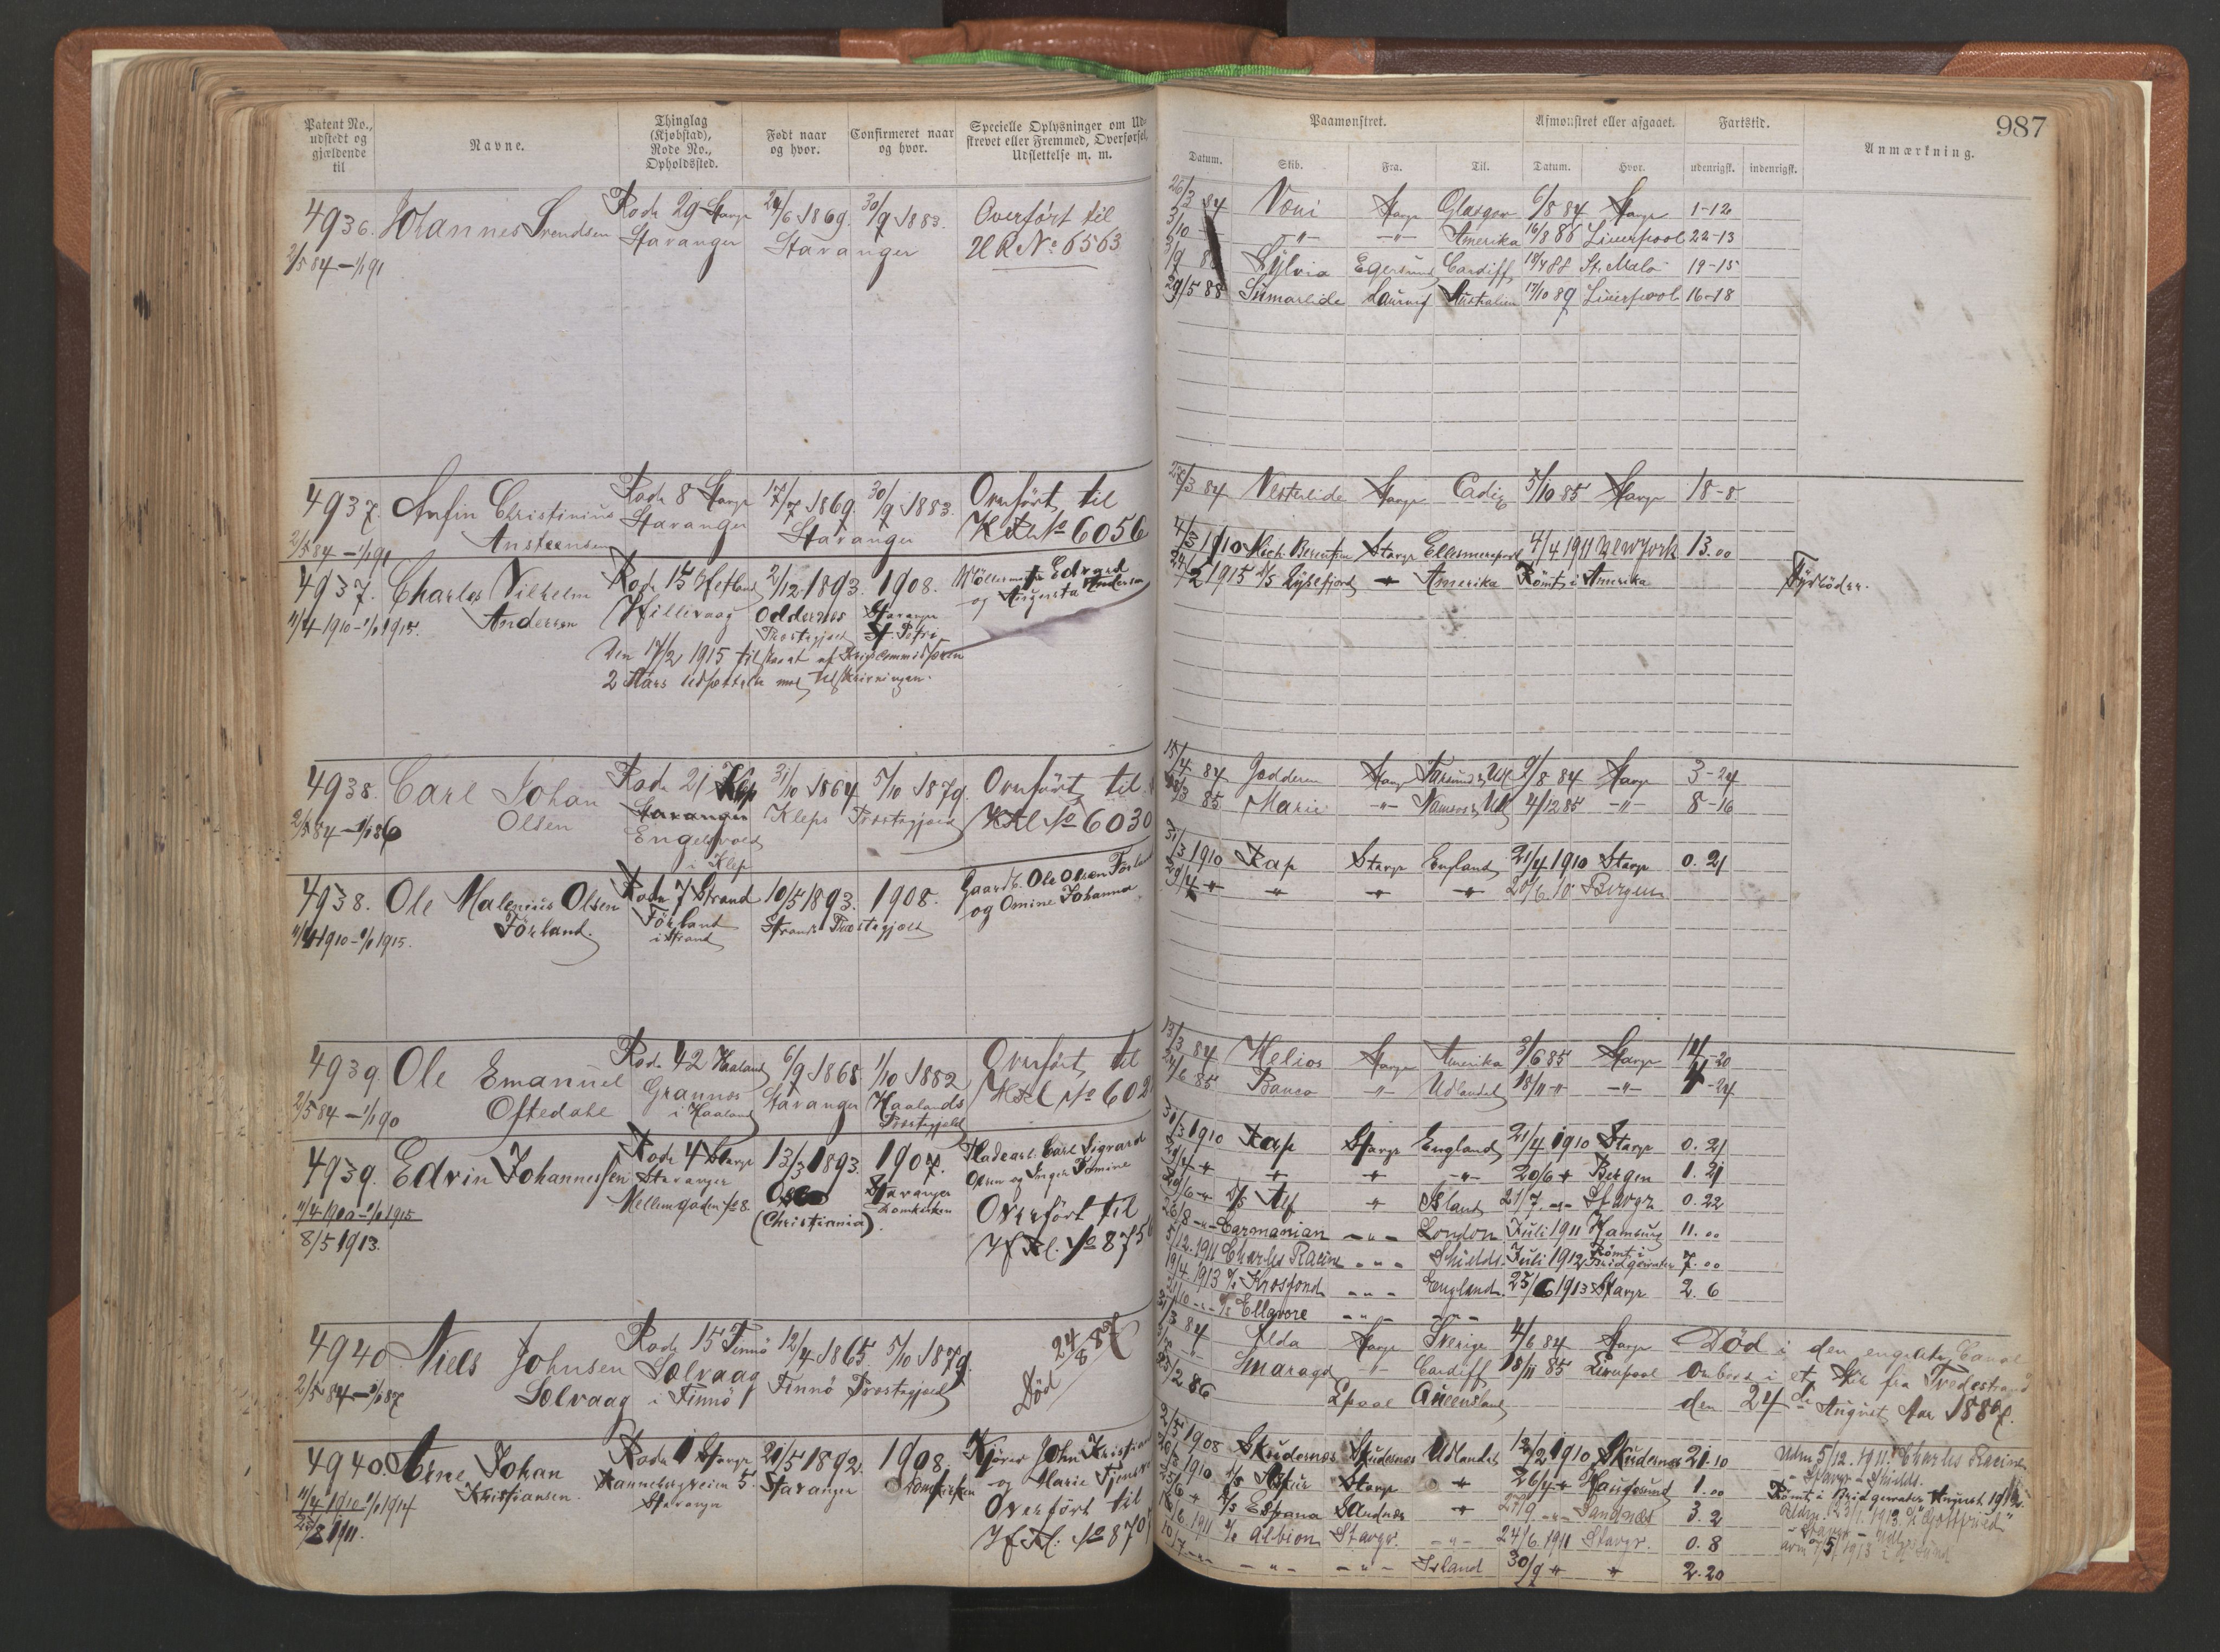 987
Patent No., udstedt og gjældende til
Navne.
Thinglag (Kjøbstad), Rode No., Opholdssted.
Født naar og hvor.
Confirmeret naar og hvor.
Specielle Oplysninger om Ud- strevet eller Fremmed, Overførsel, Udslettelse m. m.
Paamønstret.
Afmønstret eller afgaaet.
Fartstid.
Anmærkning.
Datum. Skib. Fra. Til. Datum. Hvor. udenrigsk. indenrigsk.
4936. Johannes Svendsen Rode 29 Stavgr 24/6 1869. 30/9 1883. Overført til
2/5 84 – 1/1 91 Stavanger Stavanger UR No 6563
26/3 84 Voni Stavgr Glasgow 6/8 84 Stavgr 1-12
3/10 – " – – " – Amerika 16/8 86 Liverpool 22-13
Sylvia Egersund Cardiff St. Malo 19-15
29/5 88 Sumarlide Laurvig Australien 17/10 89 Liverpool 16-18
4937. Anfin Christinius Rode 8 Stavgr 17/7 1869. 30/9 1883. Overført til
2/5 84 – 1/1 91 Ansteensen Stavanger Stavanger HRl No 6056
/3 84 Vesterlide Stavgr Cadiz 3/10 85 Stavgr 18-8
4937. Charles Vilhelm Rode 15 Hetland 2/12 1893. 1908. Edvard
11/4 1910 – 1/1 1915. Andersen Hillevaag Oddernes Stavanger og Augusta Andersen
Præstegjæld St. Petri
Den 17/2 1915 tilstaaet af Krigskommissæren
2 Aars Udsættelse med Udskrivningen.
4/3 1910 Mich. Berentsen Stavgr Ellesmereport 4/4 1911 New York 13.00
/2 1915 d/s Lysefjord Amerika Rømt i Amerika Fyrbøder.
4938. Carl Johan Rode 21 Klep 31/10 1864. 5/10 1879. Overført til
2/5 84 – 1/1 86 Olsen Stavanger Kleps Præstegjæld HRl No 6030
Engelsvold
i Klep
15/4 84 Jædderen Stavgr 9/8 84 Stavgr 3-24
85 Marie – " – 4/12 85 – " – 8-16
4938. Ole Malenius Olsen Rode 7 Strand 10/5 1893. 1908. Gaardb. Ole Olsen Førland
11/4 1910 – 1/1 1915. Førland. Førland Strands Præstegjæld og Omine Johanna
i Strand
31/3 1910 Kap Stavgr England 21/4 1910 Stavgr 0. 21
29/4 " " " " 20/6. 10 Bergen
4939. Ole Emanuel Rode 42 Haaland 6/9 1868 1/10 1882 Overført til
2/5 84 – 1/1 90 Oftedahl Grannes Stavanger Haalands HRl No 602
i Haaland Præstegjæld
13/3 84 Helios Stavgr Amerika 3/6 85 Stavgr 14-20
24/6 85 Banco – " – Udlandet 18/11 " – " – 4-24
4939. Edvin Johannessen Rode 4 Stavgr 13/3 1893. 1907. Carl Sigvard
11/4 1910 – 1/1 1915 Stavanger Oslo Stavanger Olsen og Inger Tomine
8/5 1913. Mellemgaden No 8. (Christiania). Domkirken Overført til
HfRl. No 875
31/3 1910 Kap Stavgr England 21/4 1910 Stavgr 0. 21
29/4 " " " " 20/6 " Bergen 1. 21
20/6 " d/s Alf " Island 21/7 – " – Stavgr 0. 22
26/8 – " – Carmanian – " – London Juli 1911 Hamburg 11. 00
5/12. 1911 Charles Racine – " – Shields Juli 1912 Rømt i Bridgewater 7. 00
19/4 1913 d/s Krosfond – " – England 25/6 1913 Stavgr 2. 6
d/s Ellavore – " – – " –
4940. Niels Johnsen Rode 15 Finnø 12/4 1865. 5/10 1879. Død 24/8 87
2/5 84 – 1/1 87 Solvaag Solvaag Finnø Præstegjæld
i Finnø
31/3 84 Alda Stavgr Sverige 4/6 84 Stavgr Død i den engelske Canal
Smaragd – " – Cardiff 18/11 85 Liverpool ombord i et Skib fra Tvedestrand
/2 86 Queensland den 24de August Aar 1887.
4940. Arne Johan Rode 1 Stavgr 21/5 1892. 1908. Kjører John Kristian
11/4 1910 – 1/1 1914 Kristiansen. Kannebergveien 5. Stavanger Domkirken og Marie
1911. Stavanger Overført til
HfRl. No 870
2/5 1908 Skudesnæs Skudesnæs Udlandet 12/2 1910 Skudesnæs 21. 10
1910 d/s Stavgr " 26/4 " Haugesund 1. 00
d/s Espana Sandnæs " 27/9 – " – Sandnæs 3. 2
16/6. 1911 d/s Albion Stavgr. – " – 24/6. 1911 Stavgr. 0. 8
10/7 – " – – " – – " – Island 30/9 " " 2. 20
Udm 5/12. 1911. Charles Racine
– Stavgr – Shields.
Rømt i Bridgewater August 1912.
23/1. 1913. d/s "Gottfried"
– Stavgr –